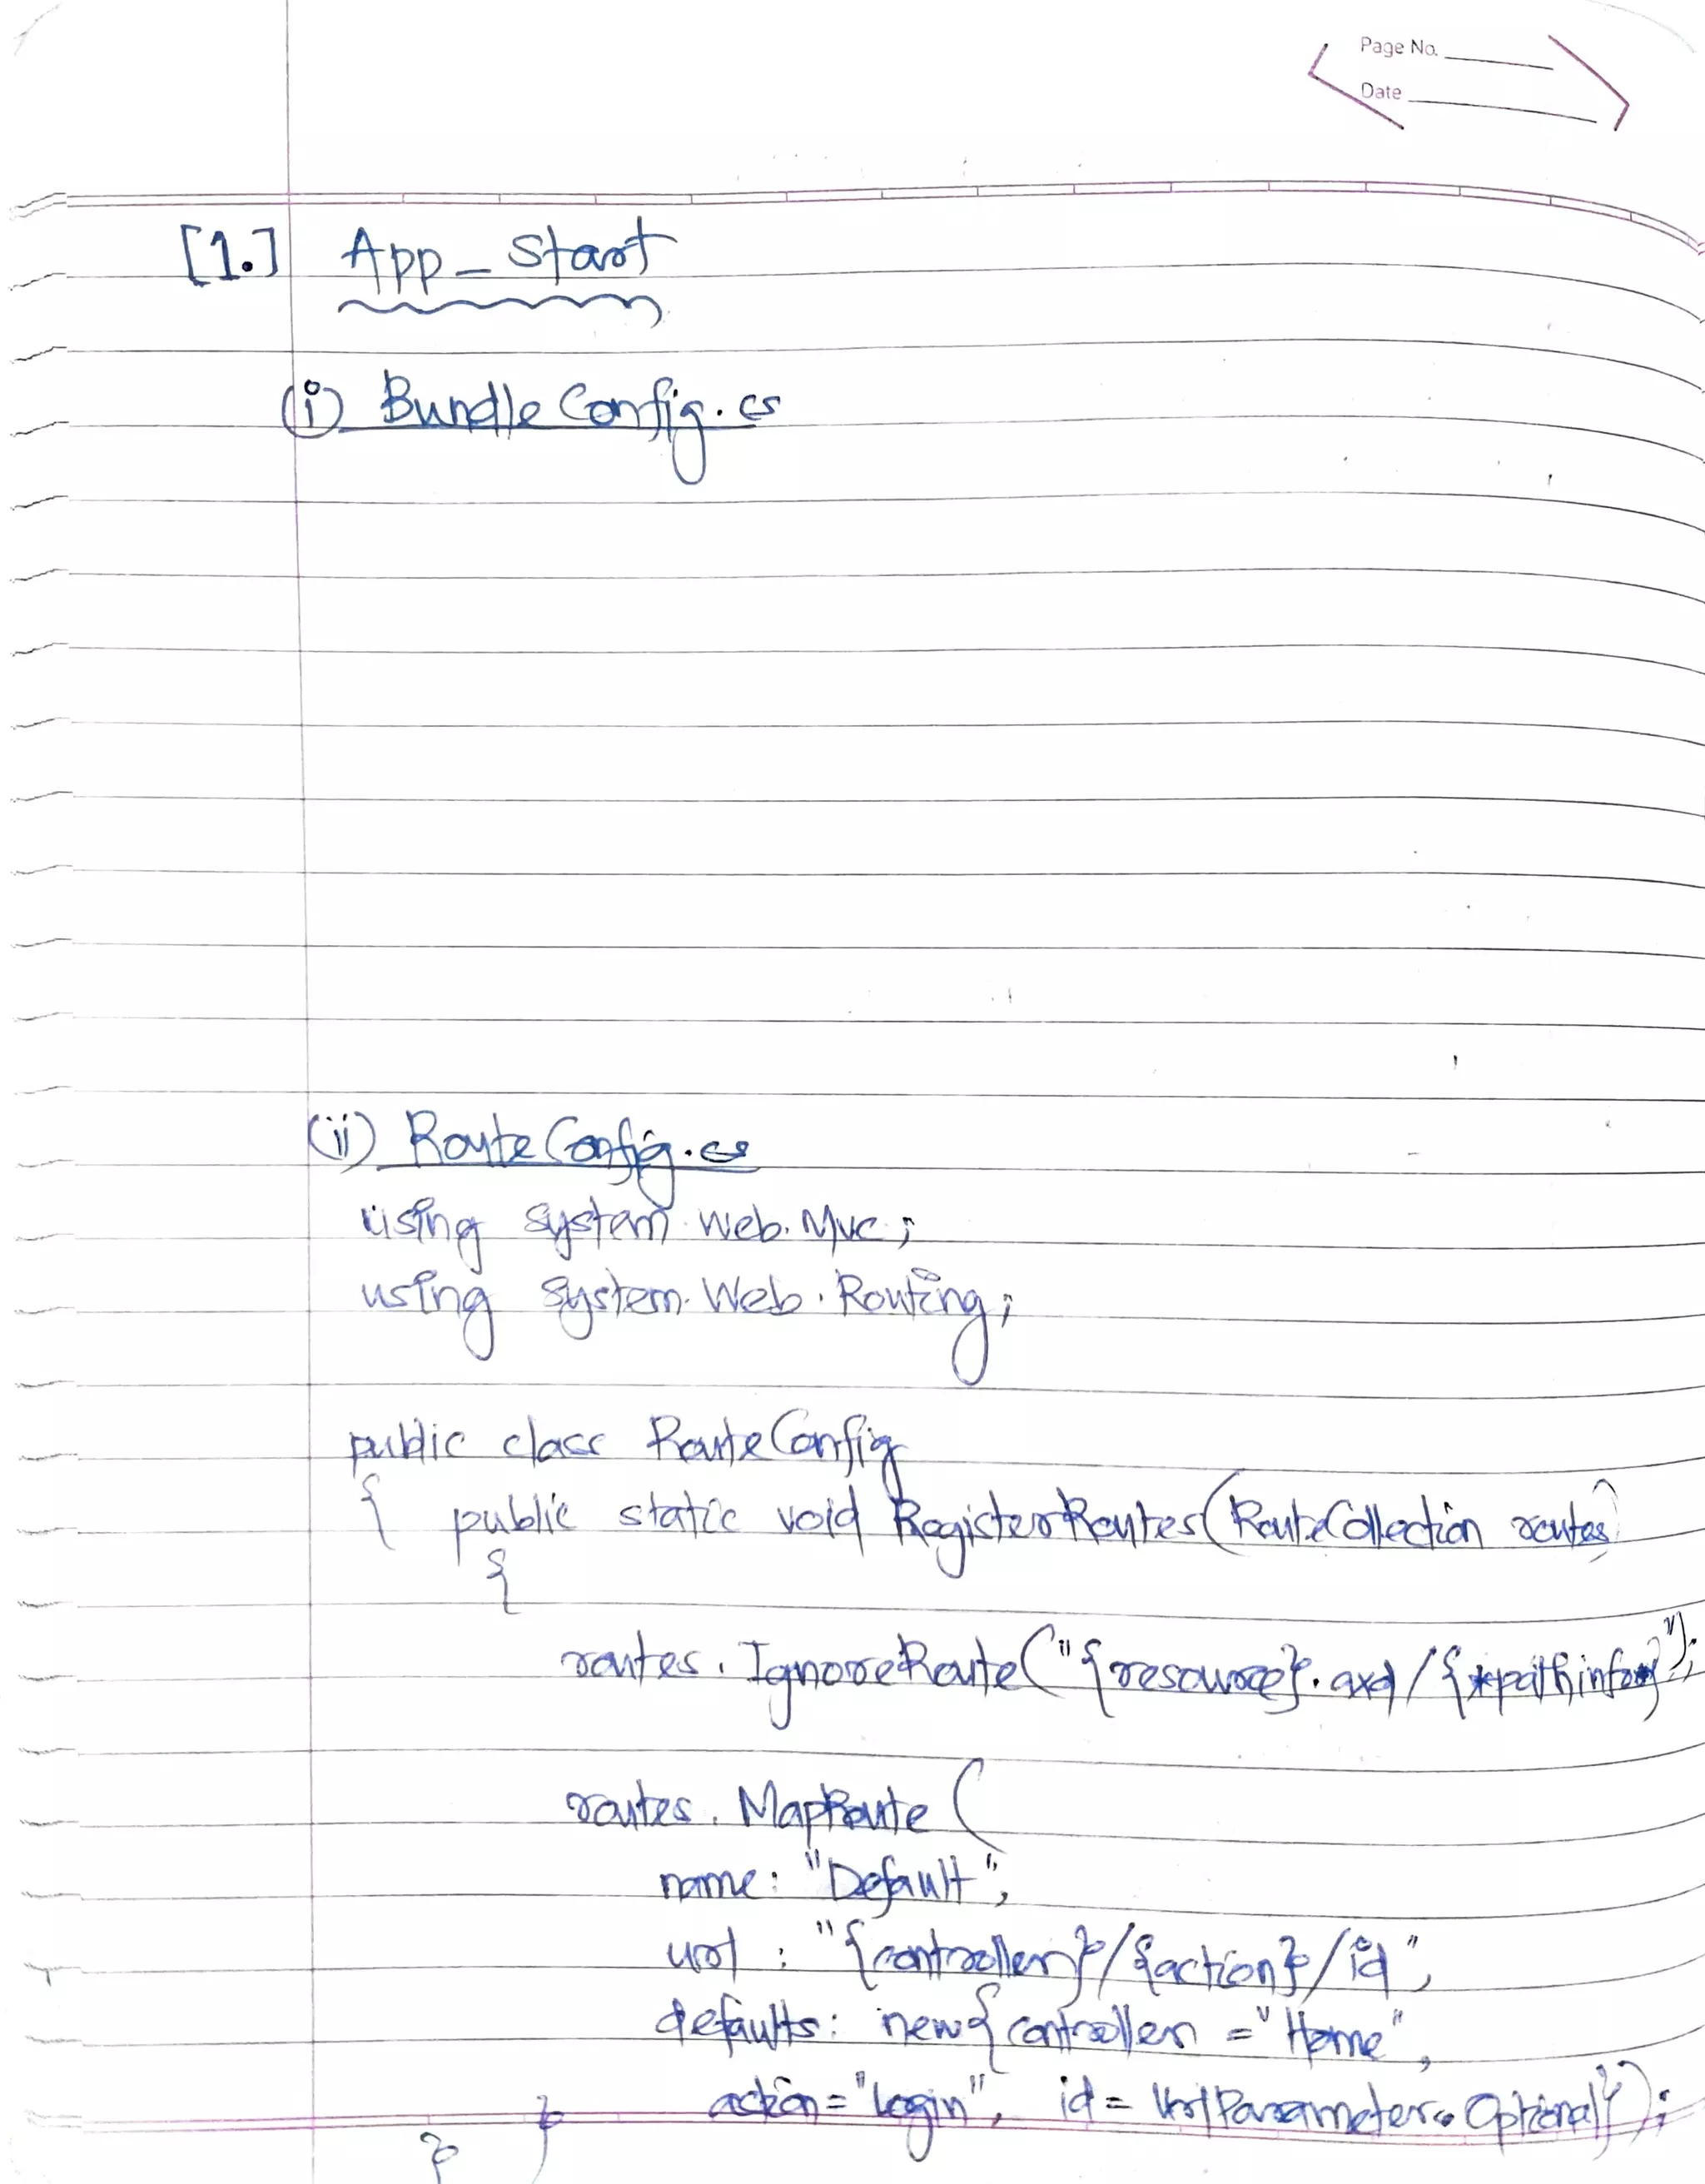 Page No.
Date
[1.] App_Start
(i) BundleConfig.cs
(ii) RouteConfig.cs
using system.Web.Mvc;
using system.Web.Routing;
public class RouteConfig
{ public static void RegisterRoutes(RouteCollection routes)
{
routes.IgnoreRoute("{resource}.axd/{*pathinfo}");
routes.MapRoute(
name: "Default",
url : "{controller}/{action}/id",
defaults: new{ controller ="Home",
action="Login", id= UrlParameter.Optional});
}
}